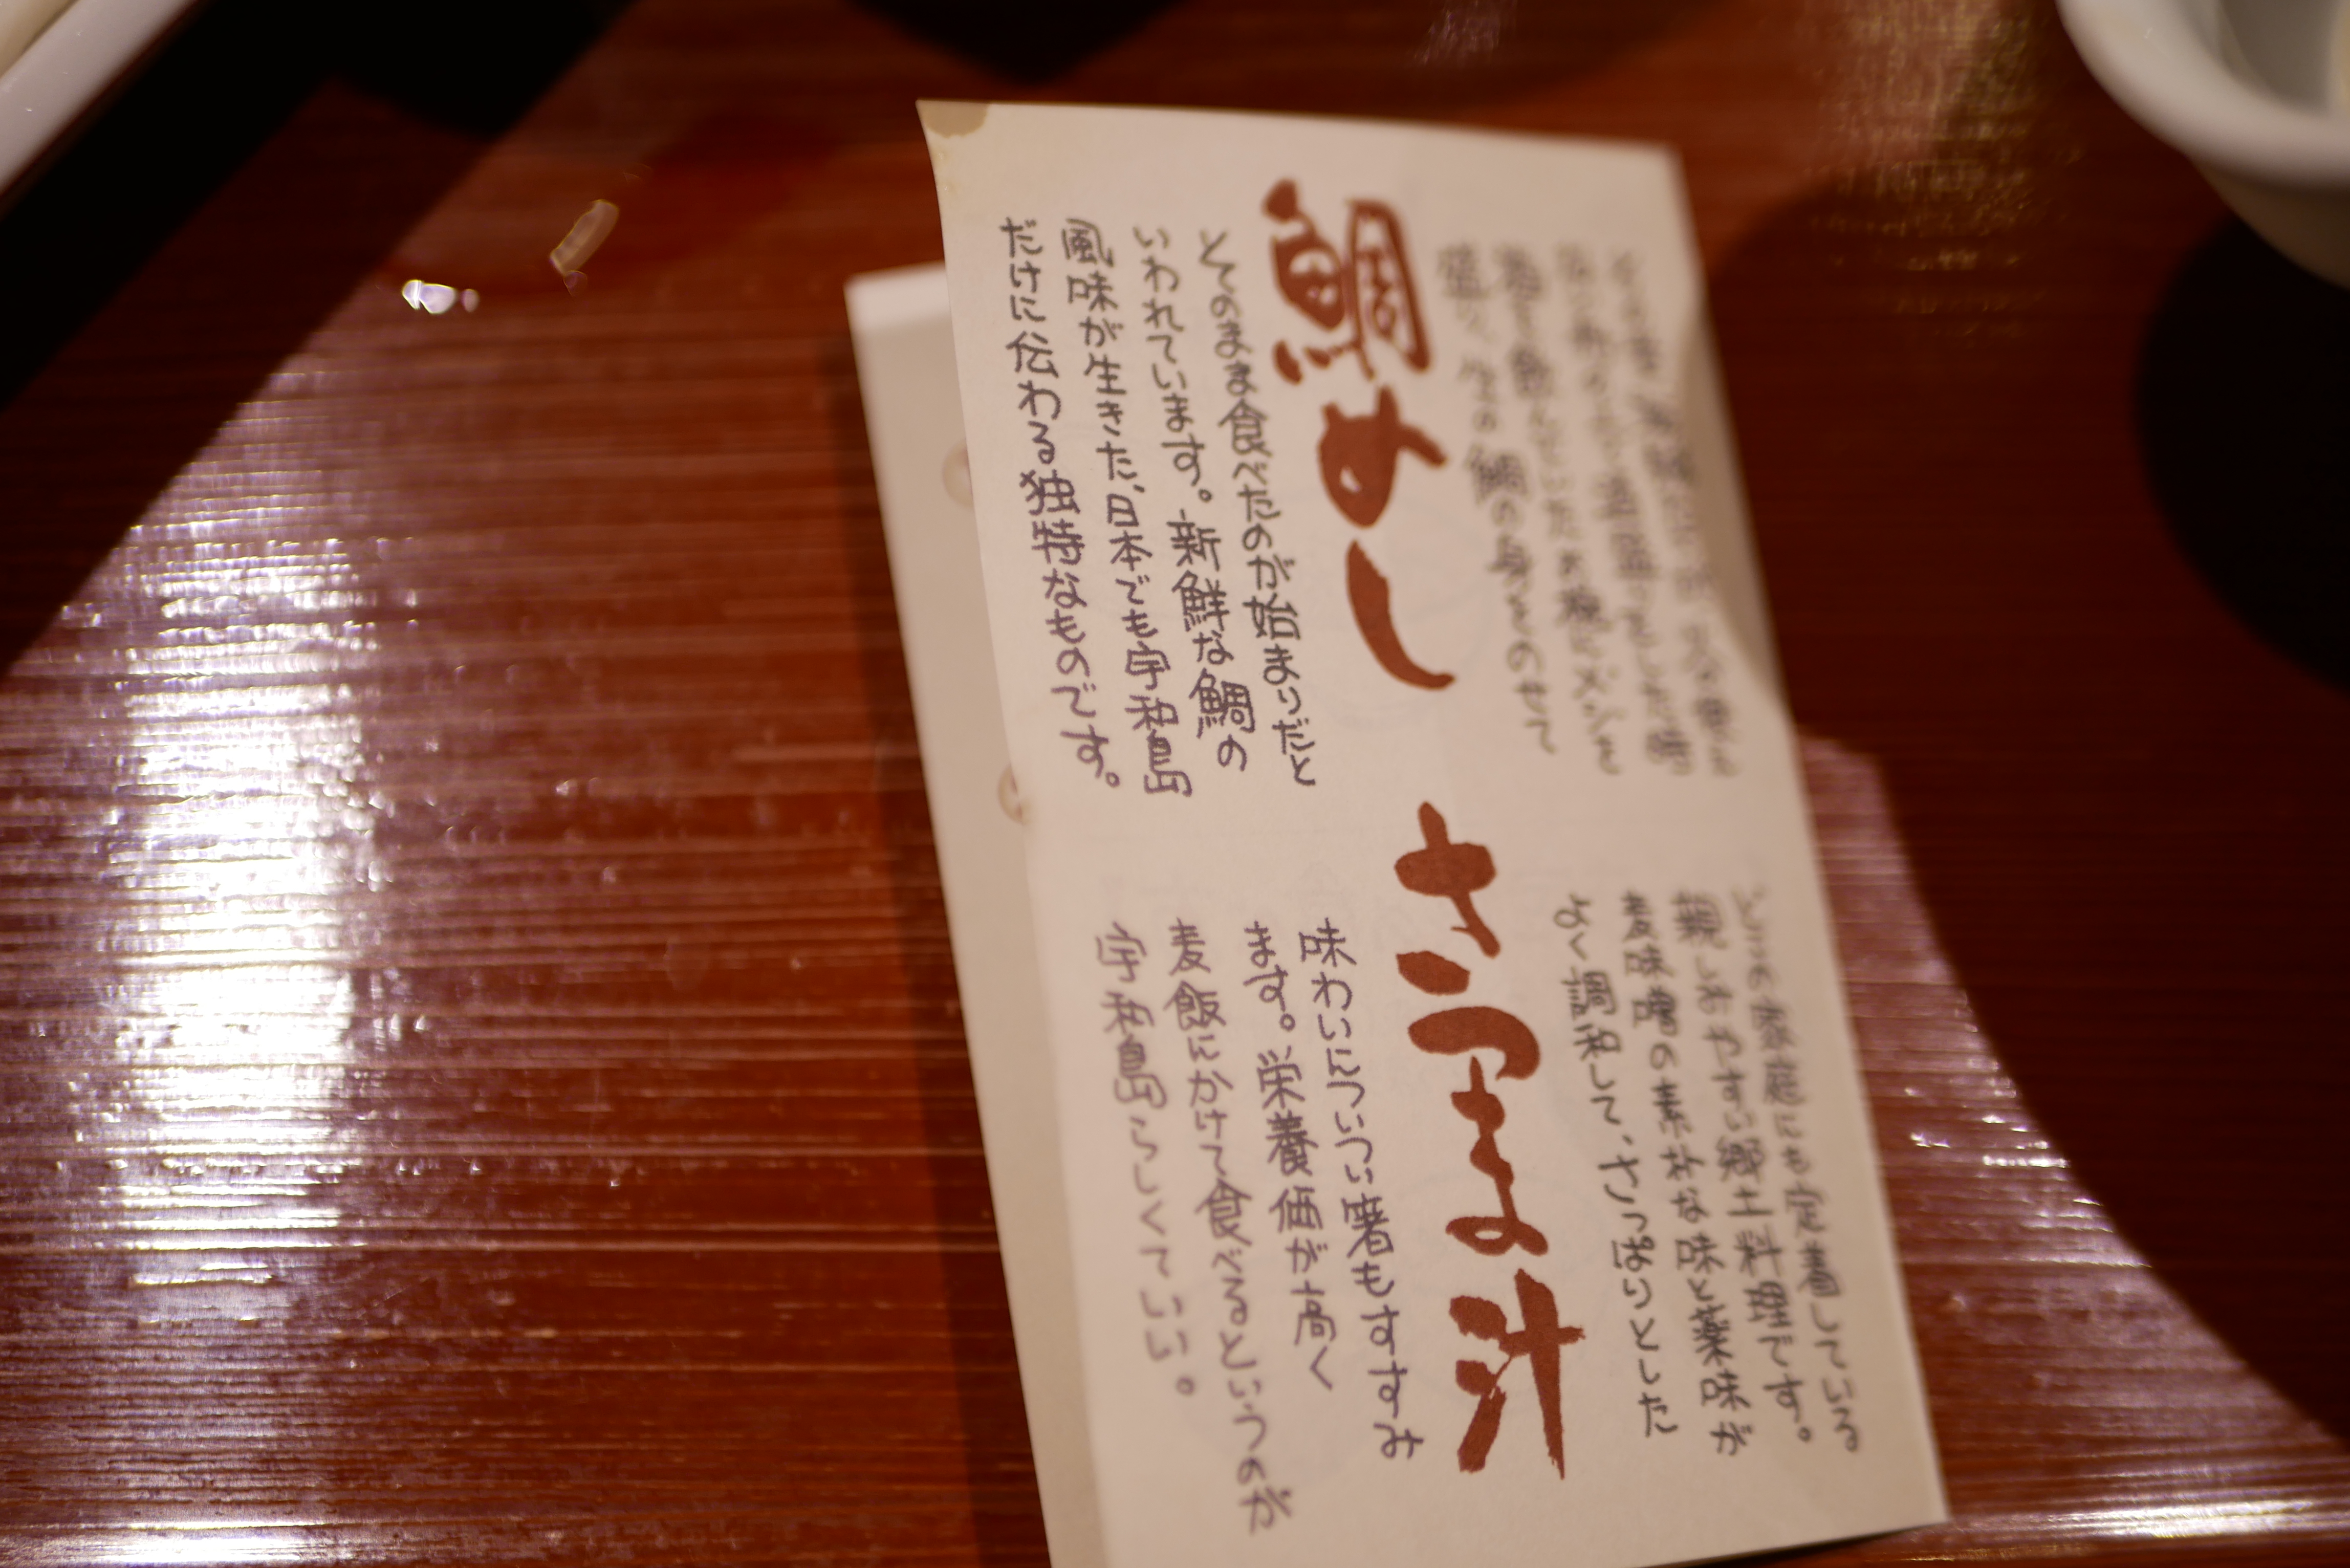 酒を飲んでいたお椀にメシを
盛り、生の鯛の身をのせて
鯛めし
そのまま食べたのが始まりだと
いわれています。新鮮な鯛の
風味が生きた、日本でも宇和島
だけに伝わる独特なものです。
どこの家庭にも定着している
親しみやすい郷土料理です。
麦味噌の素朴な味と薬味が
よく調和して、さっぱりとした
さつま汁
味わいについつい箸もすすみ
ます。栄養価が高く
麦飯にかけて食べるというのが
宇和島らしくていい。